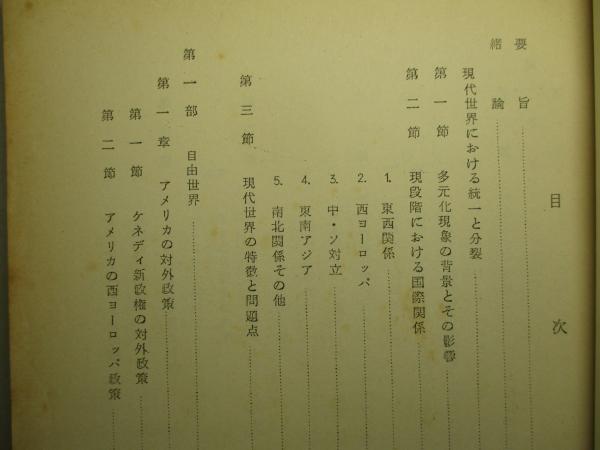 目次
要旨
緒論
現代世界における統一と分裂
第一節 多元化現象の背景とその影響
第二節 現段階における国際関係
1. 東西関係
2. 西ヨーロッパ
3. 中・ソ対立
4. 東南アジア
5. 南北関係その他
第三節 現代世界の特徴と問題点
第一部 自由世界
第一章 アメリカの対外政策
第一節 ケネディ新政権の対外政策
第二節 アメリカの西ヨーロッパ政策